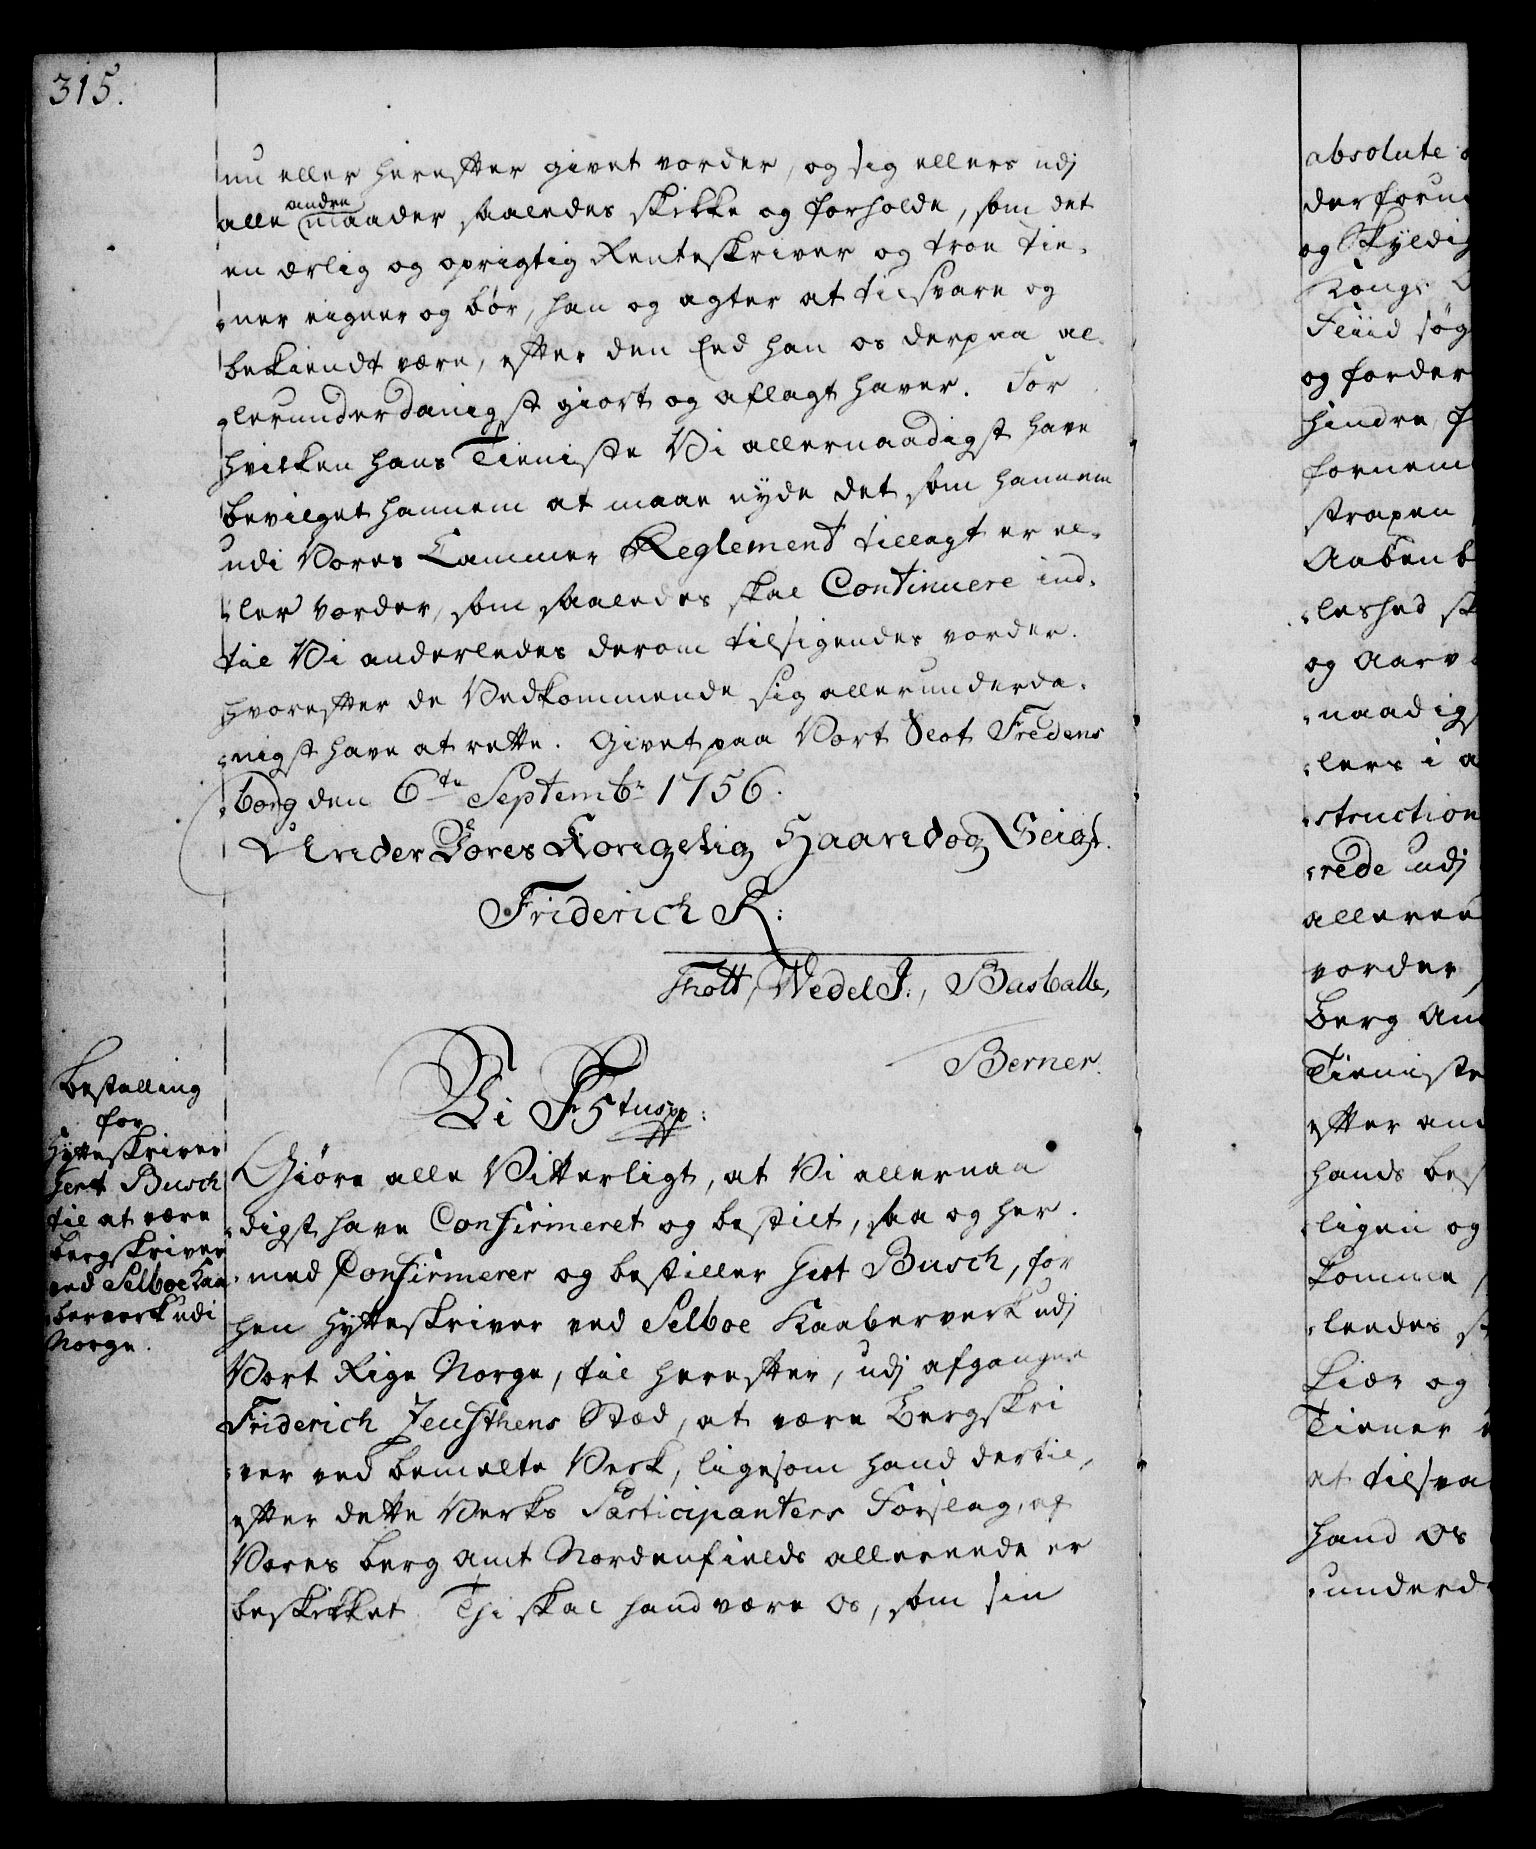 315.
nu eller herefter givet vorder, og sig ellers udj
alle andre maader saaledes skikke og forholde, som det
en ærlig og oprigtig Renteskriver og troe tie-
-ner eigner og bør, han og agter at tilsvare og
bekiendt være, efter den Eed han os derpaa al-
-lerunderdanigst giort og aflagt haver. For
hvilken hans Tieniste Vi allernaadigst have
bevilget hannem at maae nyde det som hannem
udi Vores Cammer Reglement tillagt er el-
-ler vorder, som saaledes skal Continuere ind-
til Vi anderledes derom tilsigendes vorder.
hvorefter de Vedkommende sig allerunderda-
-nigst have at rette. Givet paa Vort Slot Fredens
-borg den 6te Septembr 1756.
Under Vores Kongelig Haand og Seigl.
Friderich R:
Thott, Wedel J:, Busballe,
Berner.
Bestalling
for
Hytteskriver
Gert Busch
til at være
bergskriver
ved Selboe Kaa
berverk udi
Norge.
Vi Fr 5tus pp:
Giøre alle Vitterligt, at Vi allernaa
digst have Confirmeret og bestilt, saa og her-
-med Confirmerer og bestiller Gert Busch, for
hen Hytteskriver ved Selboe Kaaberverk udj
Vort Rige Norge, til herefter, udj afgangne
Friderich Jensthens Stæd, at være Bergskri
-ver ved bemelte Verk, ligesom hand dertil,
efter dette Verks Participanters Forslag, af
Vores berg Amt Nordenfields allereede er
beskikket. Thi skal hand være Os, som sin
absolute
og
Kongs
Feiid søg
og forder
hindre, f
fornem
strapen
Aabenb
-leshed st
og Aarv
-naadigs
-lers i a
-struction
-rede udj
alleree
vorder,
Berg Am
Tieniste
efter an
hands bes
-ligen og
komme,
-ledes s
Liær og
Tiener
at tilsva
hand Os
-underd